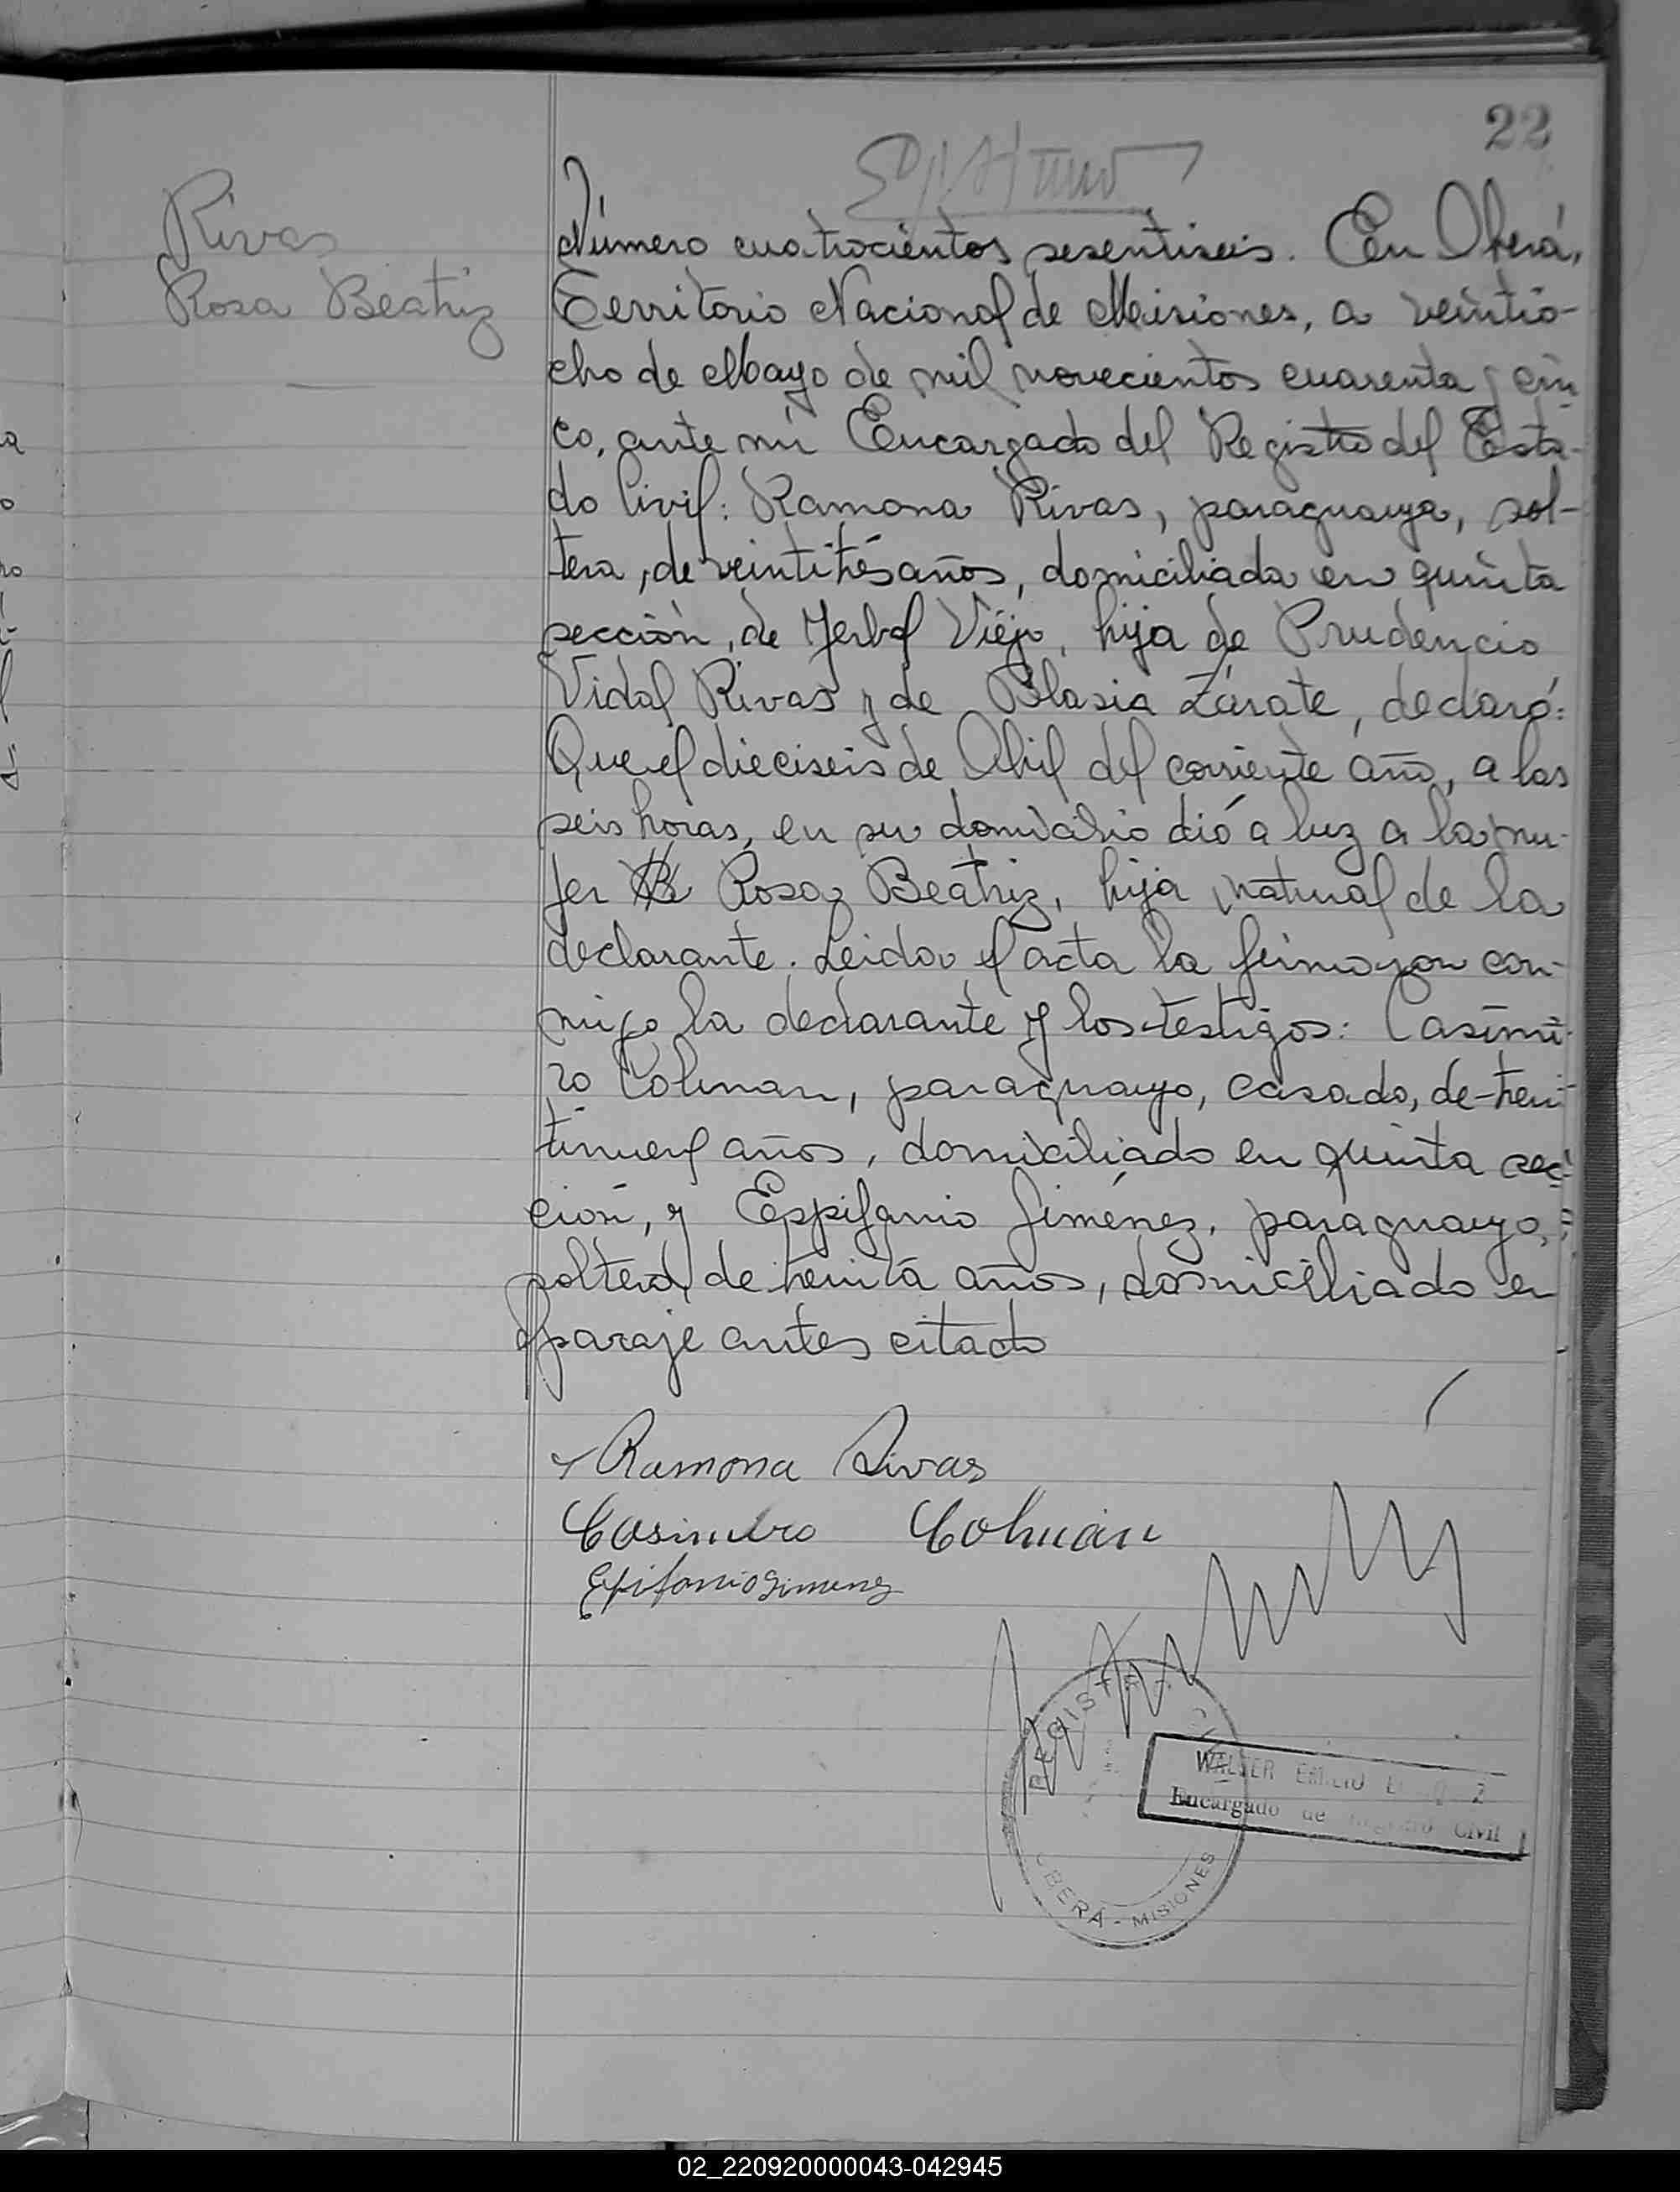 22
Rivas
Rosa Beatriz
Número cuatrocientos sesentiseis. En Oberá,
Territorio Nacional de Misiones, a veintio-
cho de Mayo de mil novecientos cuarenta y cin-
co, ante mí Encargado del Registro del Esta-
do Civil: Ramona Rivas, paraguaya, sol-
tera, de veintitrés años, domiciliada en quinta
sección, de Yerbal Viejo, hija de Prudencio
Vidal Rivas y de Blasia Zárate, declaró:
Que el dieciseis de Abril del corriente año, a las
seis horas, en su domicilio dió a luz a la mu-
jer Rosa Beatriz, hija natural de la
declarante. Leida el acta la firmaron con-
migo la declarante y los testigos: Casimi-
ro Colman, paraguayo, casado, de trein-
tinueve años, domiciliado en quinta sec-
ción, y Eppifanio Jiménez, paraguayo,
soltero, de treinta años, domicilliado en
paraje antes citado
Ramona Rivas
Casimiro Colman
Epifanio Gimenez
REGISTRO CIVIL
OBERÁ - MISIONES
WALTER EMILIO
Encargado de Registro Civil
02_220920000043-042945